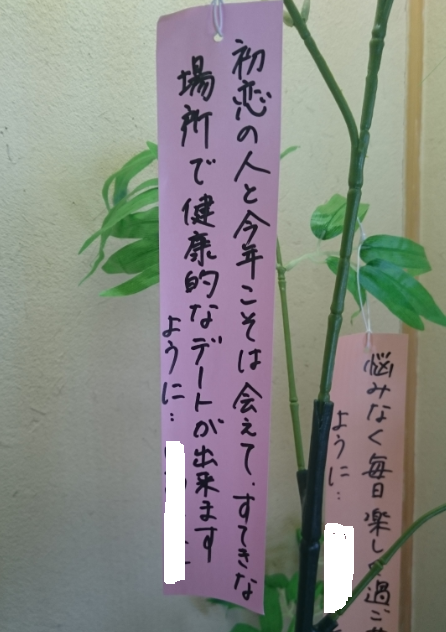 初恋の人と今年こそは会えて、すてきな
場所で健康的なデートが出来ます
ように…
悩みなく毎日楽しく過ごせ
ように…